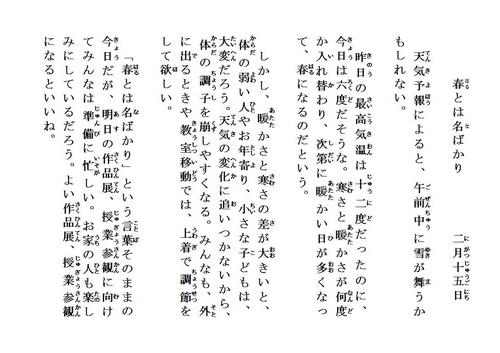 春とは名ばかり　二月十五日
天気予報によると、午前中に雪が舞うか
もしれない。
昨日の最高気温は十二度だったのに、
今日は六度だそうな。寒さと暖かさが何度
か入れ替わり、次第に暖かい日が多くなっ
て、春になるのだという。
しかし、暖かさと寒さの差が大きいと、
体の弱い人やお年寄り、小さな子どもは、
大変だろう。天気の変化に追いつかないから、
体の調子を崩しやすくなる。みんなも、外
に出るときや教室移動では、上着で調節を
して欲しい。
「春とは名ばかり」という言葉そのままの
今日だが、明日の作品展、授業参観に向け
てみんなは準備に忙しい。お家の人も楽し
みにしているだろう。よい作品展、授業参観
になるといいね。